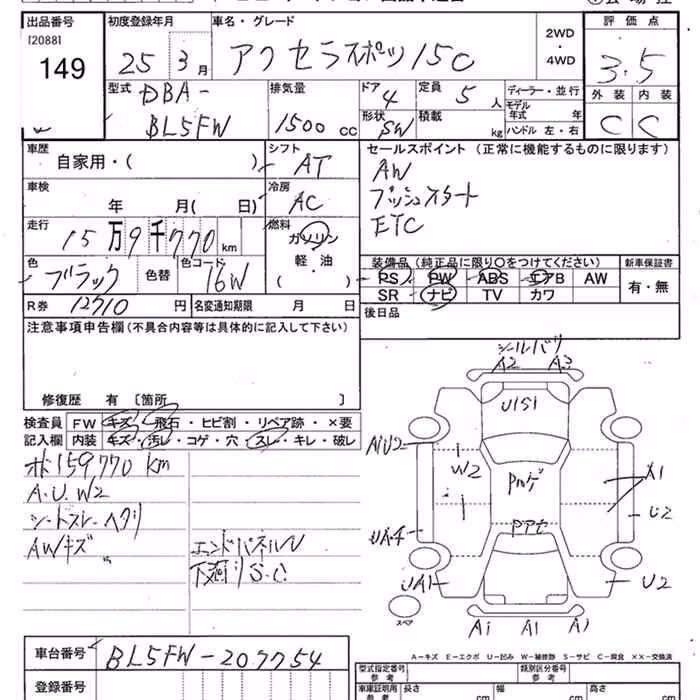 出品番号 初度登録年月 車名・グレード 2WD・4WD 評価点
[2088]
149
25 3月 アクセラスポーツ 15C 3.5
型式 DBA-BL5FW 排気量 1500 cc ドア 4 定員 5 人 ディーラー・並行 外装 内装
形状 SW 積載 kg モデル年式 年 ハンドル 左・右 C C
車歴 自家用・( ) シフト AT セールスポイント (正常に機能するものに限ります)
車検 年 月( 日) 冷房 AC AW
プッシュスタート
ETC
走行 15万9千770km 燃料 ガソリン 軽・油 ( )
色 ブラック 色替 色コード 16W
装備品 (純正品に限り〇をつけてください) 新車保証書
PS PW ABS エアB AW 有・無
SR ナビ TV カワ
R券 12710円 名変通知期限 月 日 後日品
注意事項申告欄 (不具合内容等は具体的に記入して下さい)
修復歴 有 〔箇所 〕
検査員 FW キズ・飛石・ヒビ割・リペア跡・×要
記入欄 内装 キズ・汚レ・コゲ・穴・スレ・キレ・破レ
159770 km
A.U.W2
シートスレ・ヘタリ
AWキズ
エンドパネルU
下廻りS.C
シールバリ
A2 A3
U1S1
AiU2
W2
Pルーゲ
X1
U2
UA4
PPt
UA1
U2
A1 A1 A1
スペア
A-キズ E-エクボ U-凹み W-補修跡 S-サビ C-腐食 ××-交換済
車台番号 BL5FW-207754
登録番号
型式指定番号 参考 類別区分番号 参考
車庫証明用 参考 長さ cm 幅 cm 高さ cm